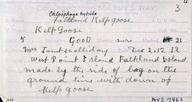 Chloephaga hybrida
3
Falkland Kelp goose
Kelp Goose
5 Good 21
Mrs Holliday Dec 2. 12
West Point Island Falkland Islands
made by the side of bog on the
ground, lining with down of
Kelp goose